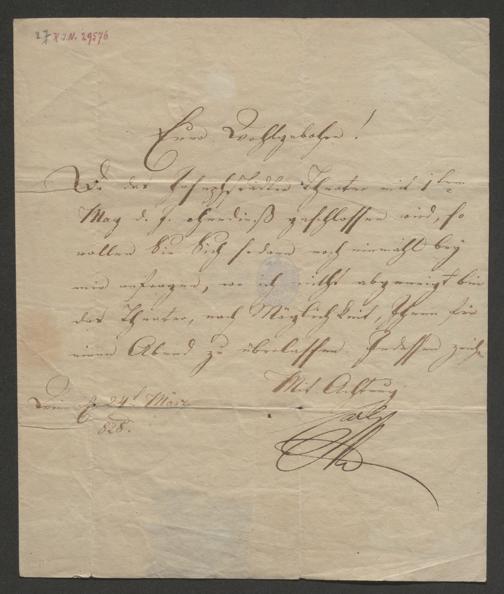 27 H.I.N. 29576
Euer Wohlgebohrn!
Da das Josephstädter Theater mit 1ten
May d. J. ohnedieß geschlossen wird, so
wollen Sie Sich sodann noch einmahl bey
mir anfragen, wo ich nicht abgeneigt bin
das Theater, nach Möglichkeit, Ihnen für
einen Abend zu überlassen. Indessen zeichne
Mit Achtung
Carl
Wien 24t März
828.